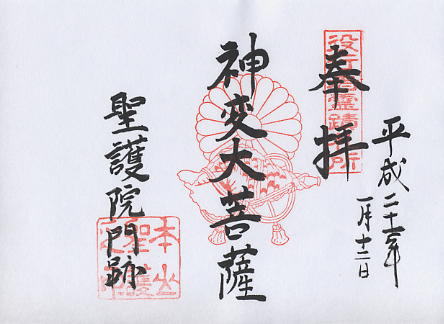 奉拝
役行者霊蹟札所
平成二十二年
一月十二日
神変大菩薩
聖護院門跡
本山